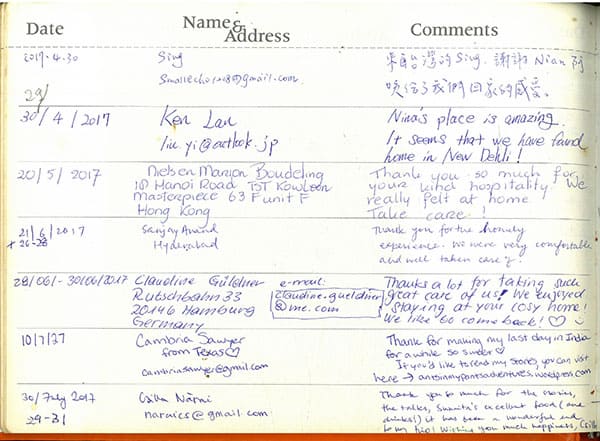 Date Name & Address Comments
2017-4.30 Sing 來自台灣的 Sing. 謝謝 Nian 阿
Smallecho1208@gmail.com 給了我們回家的感受。
29/
30/4/2017 Ken Lan Nina's place is amazing.
liu_yi@outlook.jp It seems that we have found
home in New Dehli!
20/5/2017 Nielsen Marjon Boudeling Thank you so much for
18 Hanoi Road TST Kowloon your kind hospitality. We
Masterpiece 63 F unit F really felt at home
Hong Kong Take care!
21/6/2017 Sanjay Anand Thank you for the homely
+ 26-28 Hyderabad experience. We were very comfortable
and well taken care of.
28/06/-30/06/2017 Claudine Güldner e-mail: Thanks a lot for taking such
Rutschbahn 33 claudine.gueldner great care of us! We enjoyed
20146 Hamburg @me.com staying at your cosy home!
Germany We like to come back! ♡ ☺
10/7/17 Cambria Sawyer Thank for making my last day in India
from Texas ♡ for a while so sweet ♡
cambriasawyer@gmail.com If you'd like to read my stories you can visit
here → antsinmypantsadventures.wordpress.com
30/July 2017 Csilla Nárai Thank you so much for the stories,
29-31 naraics@gmail.com the talks, Sunita's excellent food (and
drinks!) it has been a wonderful end
to my trip! Wishing you much happiness, Csilla